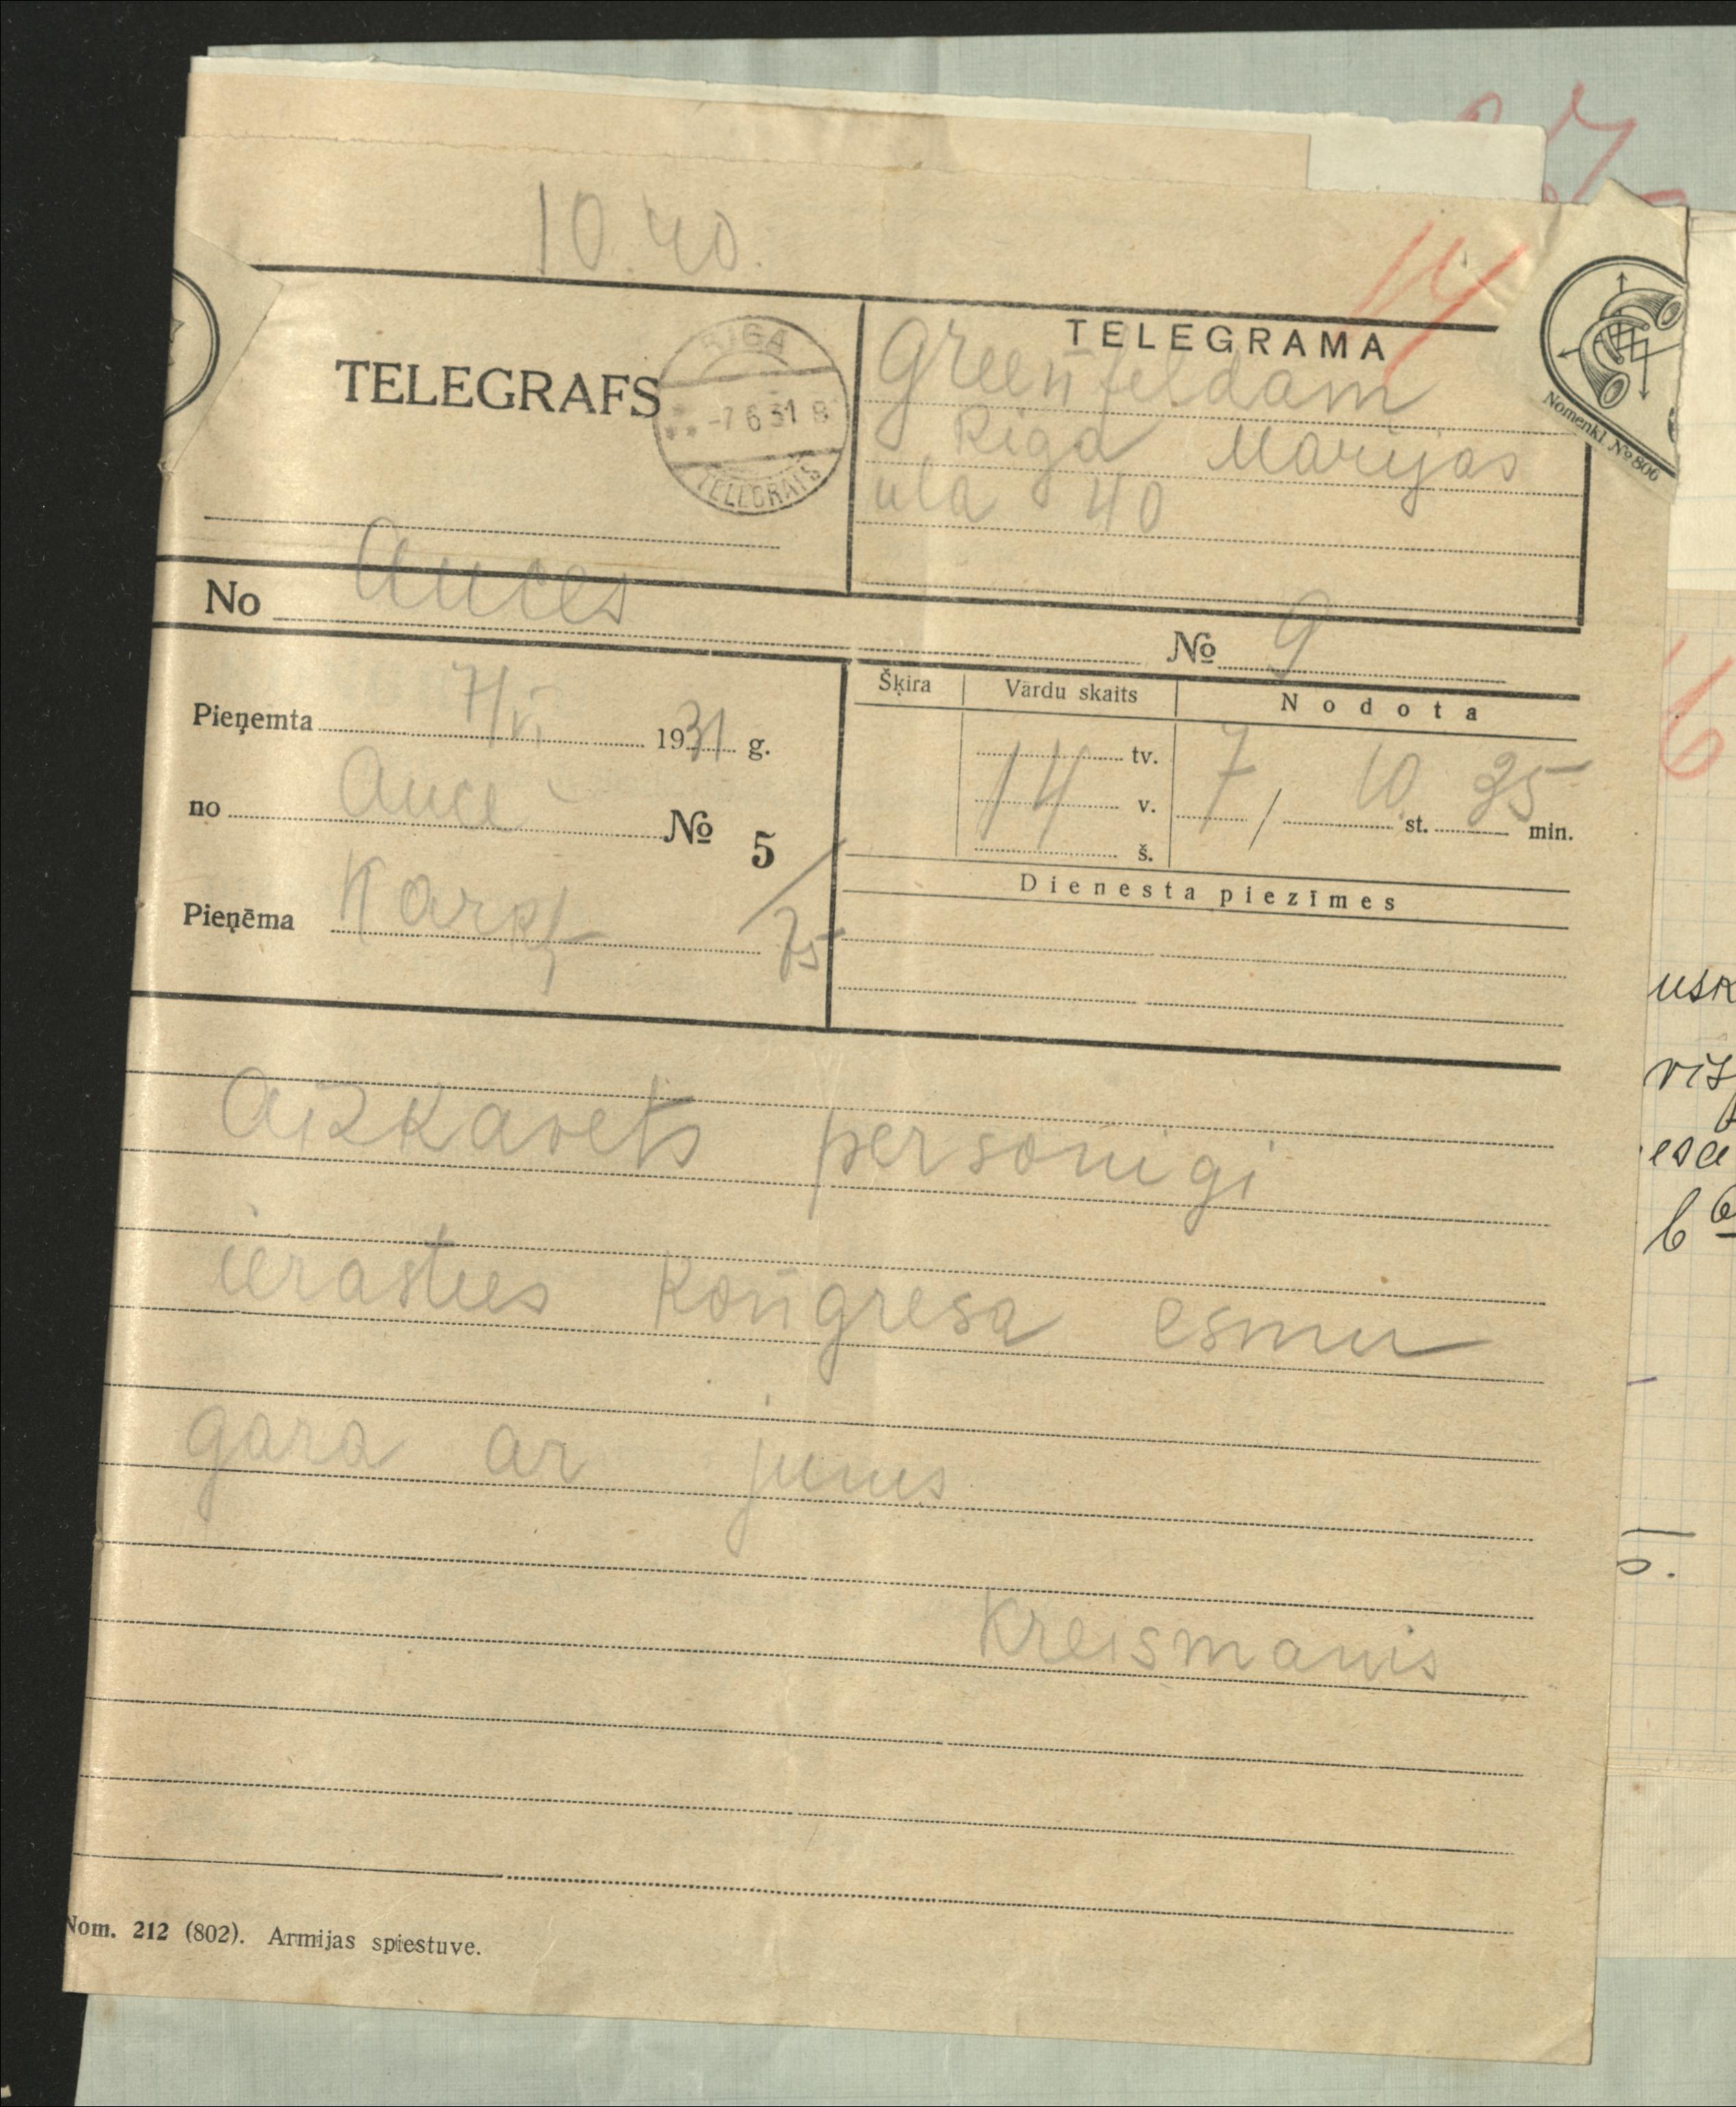 10.40.
14
TELEGRAFS
RĪGA
-7 6 31 8
TELEGRAFS
TELEGRAMA
Greenfeldam
Riga Marijas
ula 40
Nomenkl. № 806
No Auces
№ 9
Pieņemta 7/VI 1931 g.
no Auce № 5
/75
Pieņēma
Šķira Vārdu skaits Nodota
tv.
14 v. 7 / 10 st. 35 min.
š.
Dienesta piezīmes
Aizkavets personigi
ierasties kongresa esmu
gara ar jums
Kreismanis
Nom. 212 (802). Armijas spiestuve.
6